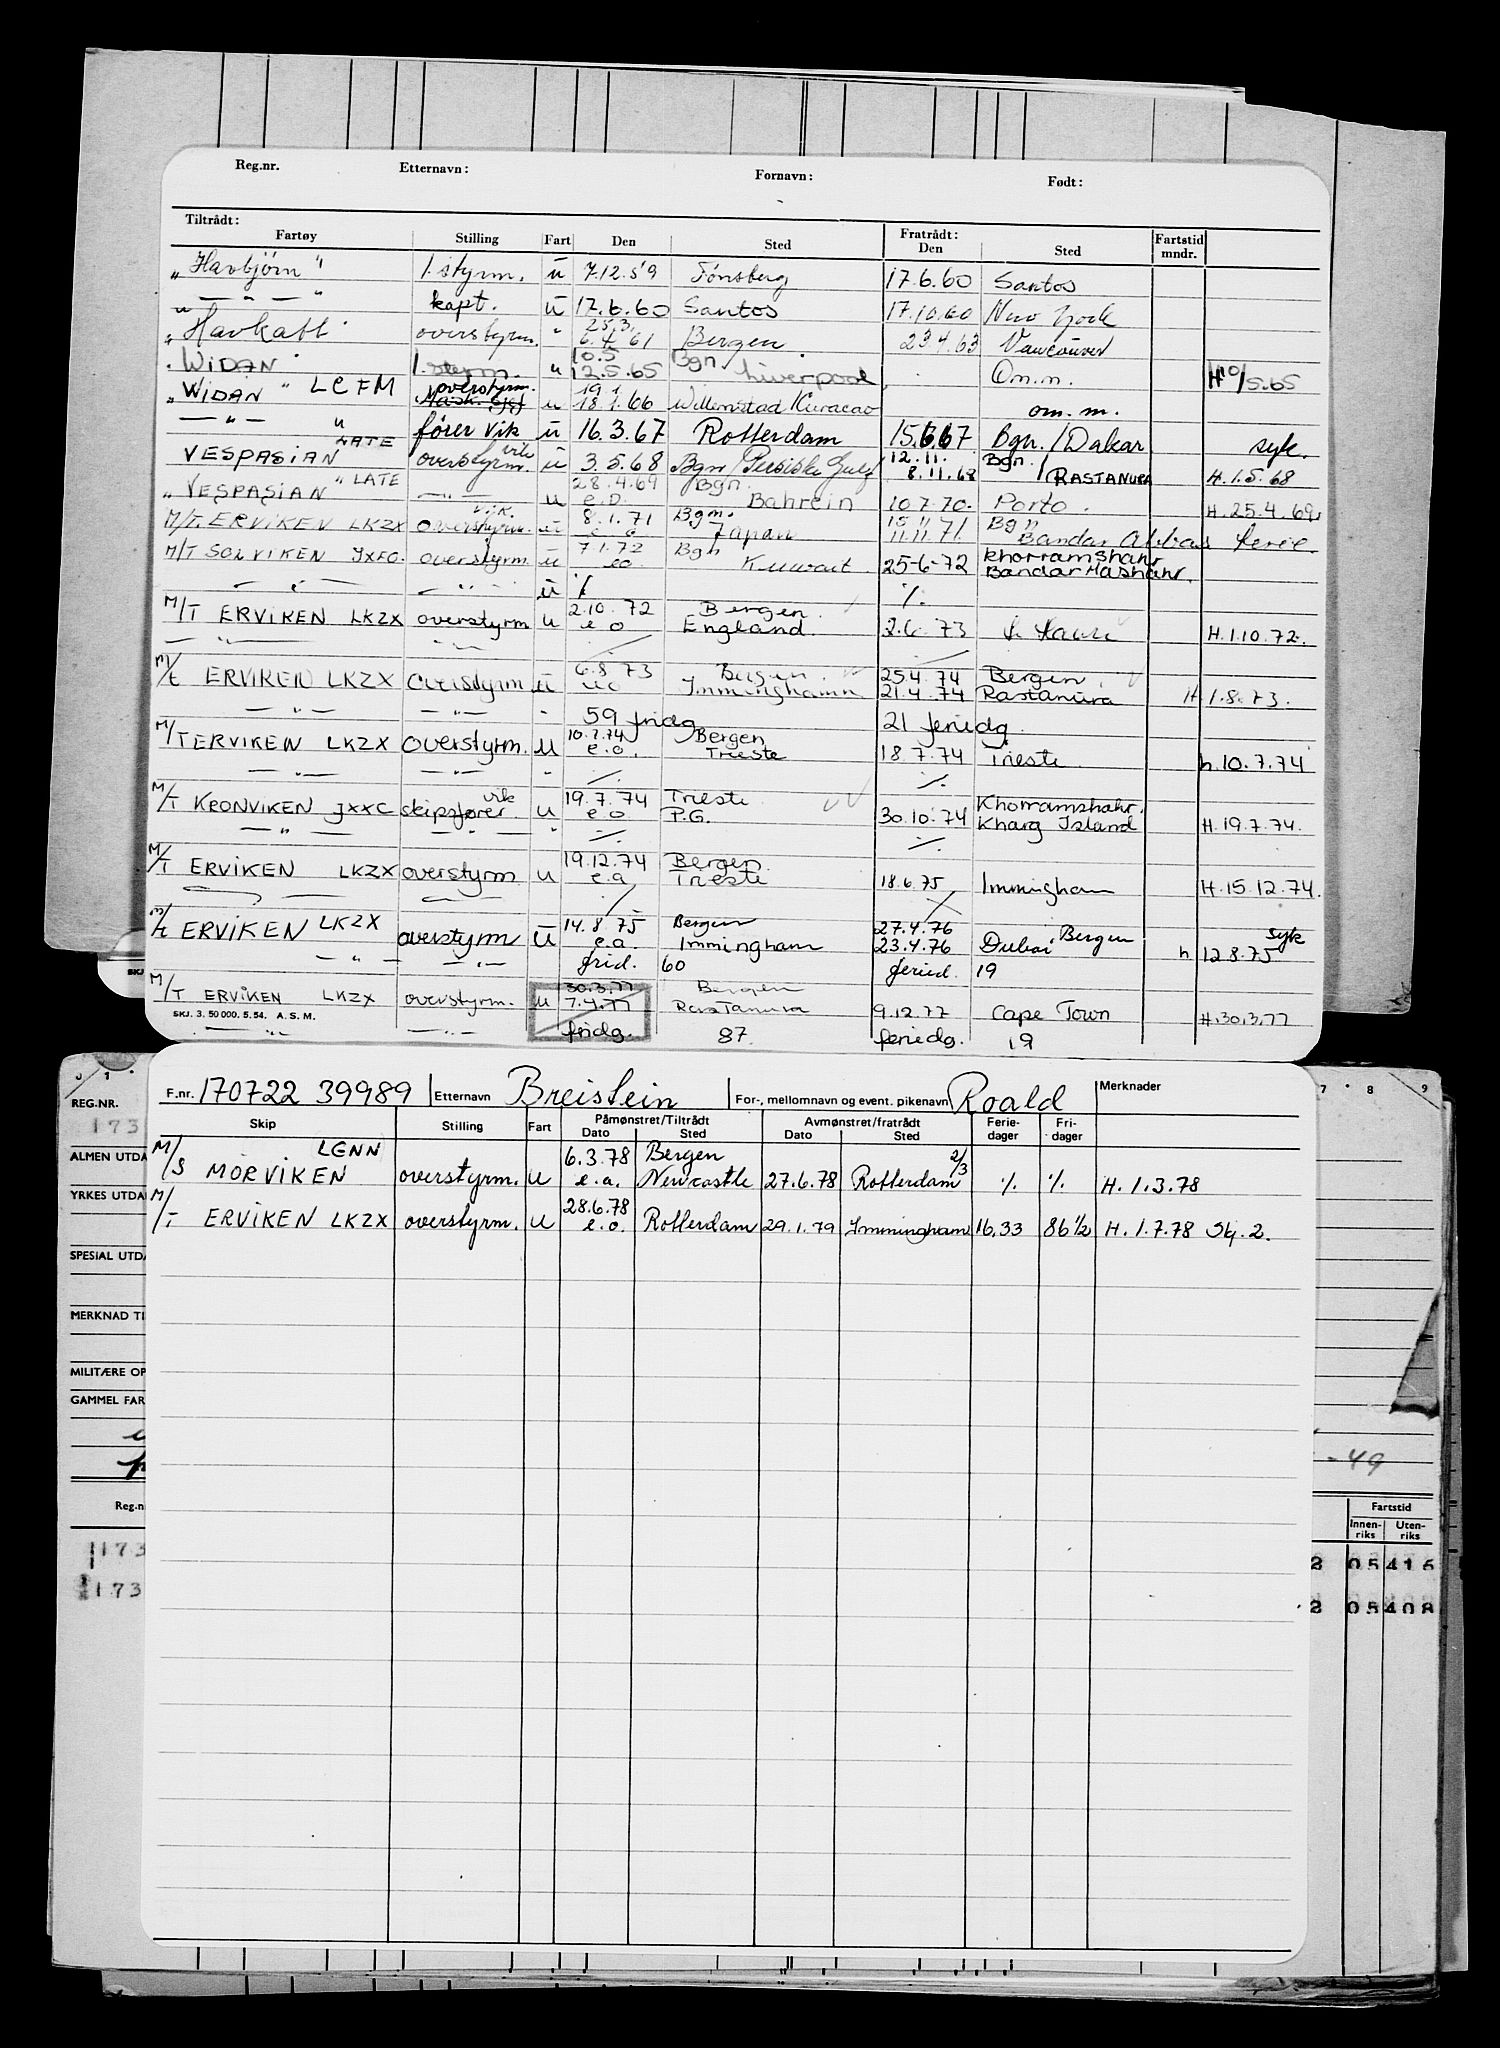 Reg.nr. Etternavn: Fornavn: Født:
Tiltrådt: Fratrådt: Fartstid
Fartøy Stilling Fart Den Sted Den Sted mndr.
„ Havbjörn " 1. styrm. u 7.12.59 Tønsberg 17.6.60 Santos
— " — " kapt. u 17.6.60 Santos 17.10.60 New York
„ Havkatt overstyrm. " 25.3. 6.4.61 Bergen 23.4.63 Vancouver
WIDAN 1. styrm. " 10.5 12.5.65 Bgn. Liverpool Om.m. H 10/5.65
„ WIDAN " LCFM overstyrm. u 19.1 18.1.66 Willemstad Kuracao om.m.
— " — " fører vik u 16.3.67 Rotterdam 15.6.67 Bgn./Dakar syk.
VESPASIAN LATE overstyrm. vik u 3.5.68 Bgn/Persiske Gulf 12.11. 8.11.68 Bgn/ RASTANURA H.1.5.68
„ VESPASIAN " LATE — " — u 28.4.69 e.o. Bgn. Bahrein 10.7.70. Porto. H.25.4.69.
M/T. ERVIKEN LKZX overstyrm. vik. u 8.1.71 e o Bgn. Japan 15.11 11.11.71 Bgn Bandar Abbas ferie.
M/T SOLVIKEN JXFO. overstyrm u 7.1.72 eo Bgn Kuwait 25-6-72 Khorramshahr Bandar Mashahr.
— " — — " — u ٪ ٪
M/T ERVIKEN LKZX overstyrm u 2.10.72 e o Bergen England. 2.6.73 H.1.10.72.
— " — — " —
M/T ERVIKEN LKZX overstyrm u 6.8.73 eo Bergen. Immingham 25.4.74 21.4.74 Bergen. Rastanura H 1.8.73.
— " — — " — - 59 fridg 21 feriedg
M/T ERVIKEN LKZX overstyrm. u 10.7.74 e.o. Bergen Trieste 18.7.74 Trieste h.10.7.74
— " — — " — "
M/T KRONVIKEN JXXC skipsfører. vik u 19.7.74 e.o Trieste P.G. 30.10.74 Khorramshahr. Kharg Island H.19.7.74.
— " — — " — "
M/T ERVIKEN LKZX overstyrm u 19.12.74 e.a Bergen Trieste 18.6.75 Immingham H.15.12.74.
M/T ERVIKEN LKZX overstyrm u 14.8.75 e.a. Bergen Immingham 27.4.76 23.4.76 Dubai Bergen h 12.8.75 syk
— " — — " — frid. 60 feried. 19
M/T ERVIKEN LKZX overstyrm. u 30.3.77 7.4.77 Bergen RasTanura 9.12.77 Cape Town H.30.3.77
SKJ. 3. 50 000. 5. 54. A. S. M.
— " — — " — fridg. 87. feriedg. 19
SKJ
F.nr. 170722 39989 Etternavn Breistein For-, mellomnavn og event. pikenavn Roald Merknader
Skip Stilling Fart Påmønstret/Tiltrådt Dato Sted Avmønstret/fratrådt Dato Sted Ferie-dager Fri-dager
M/S MORVIKEN LGNN overstyrm. u 6.3.78 e.a. Bergen Newcastle 27.6.78 Rotterdam 2/3 ٪ ٪ H.1.3.78
M/T ERVIKEN LKZX overstyrm. u 28.6.78 e.o. Rotterdam 29.1.79 Immingham 16,33 86 1/2 H.1.7.78 Skj.2.
REG.NR.
173
ALMEN UTDA
YRKES UTDA
SPESIAL UTDA
MERKNAD TI
MILITÆRE OP
GAMMEL FAR
Reg.n
173
173
7 8 9
- 49
Fartstid
Innen-riks Uten-riks
2 05416
2 05408